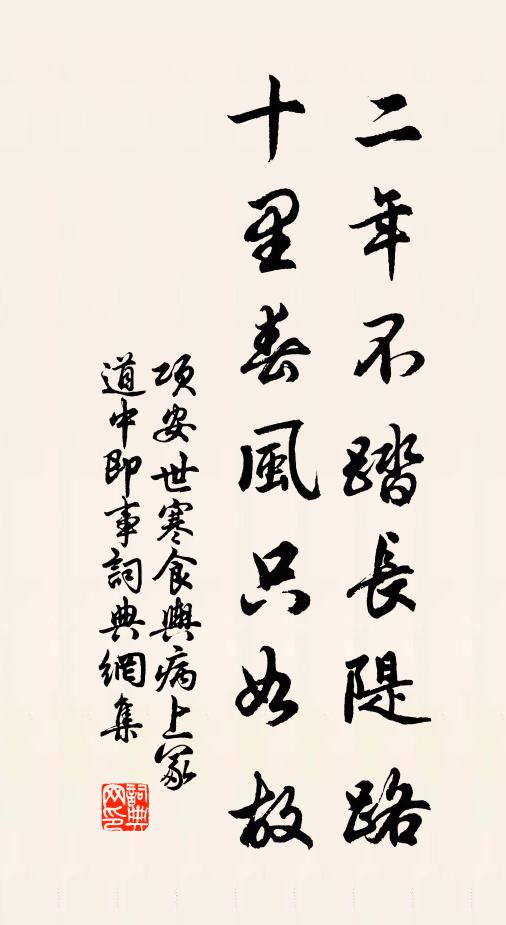 二年不踏長隄路
十里春風只如故
項安世寒食輿病上冢
道中即事詞典網集
詞典
网印